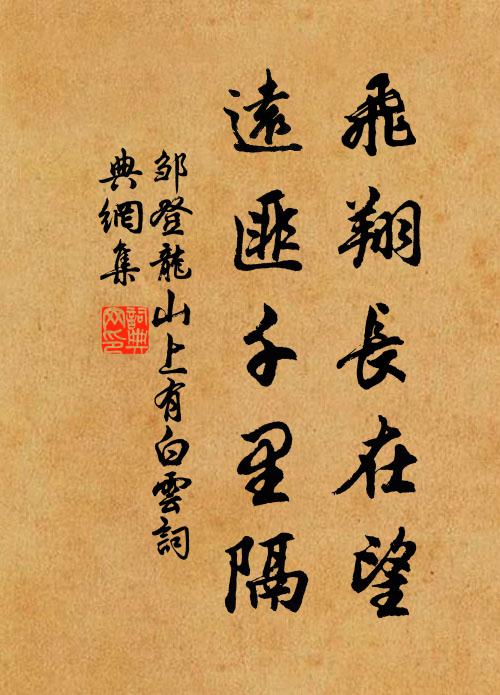 飛翔長在望
遠匪千里隔
邹登龍山上有白雲詞
典網集
詞典網印